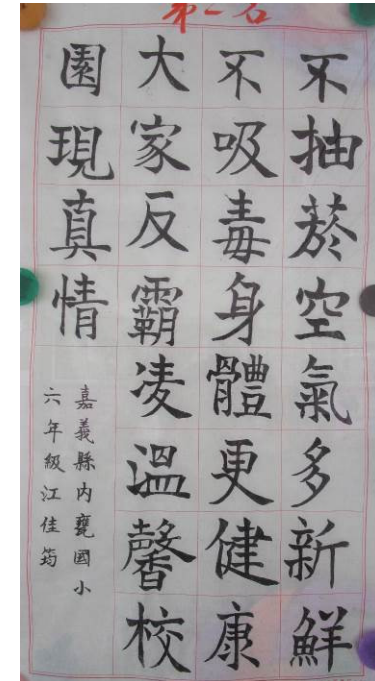 第一名
不抽菸空氣多新鮮
不吸毒身體更健康
大家反霸凌溫馨校
園現真情
嘉義縣內甕國小
六年級江佳筠